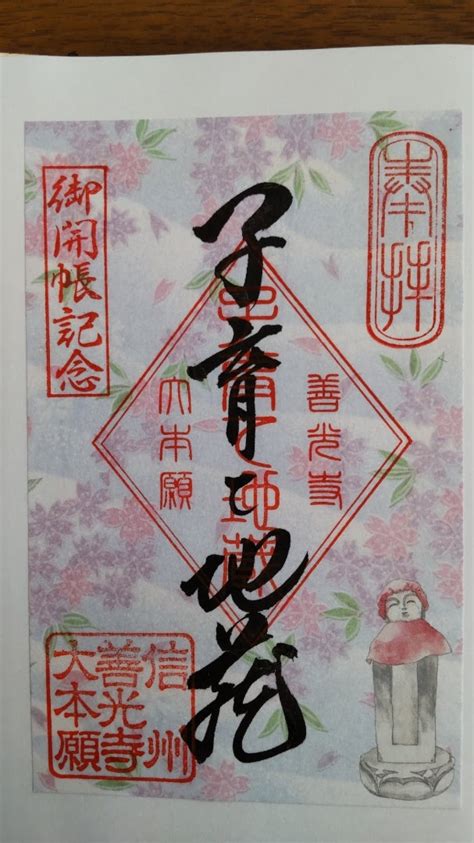 奉拝
善光寺
子育地蔵
大本願
御開帳記念
信州
善光寺
大本願